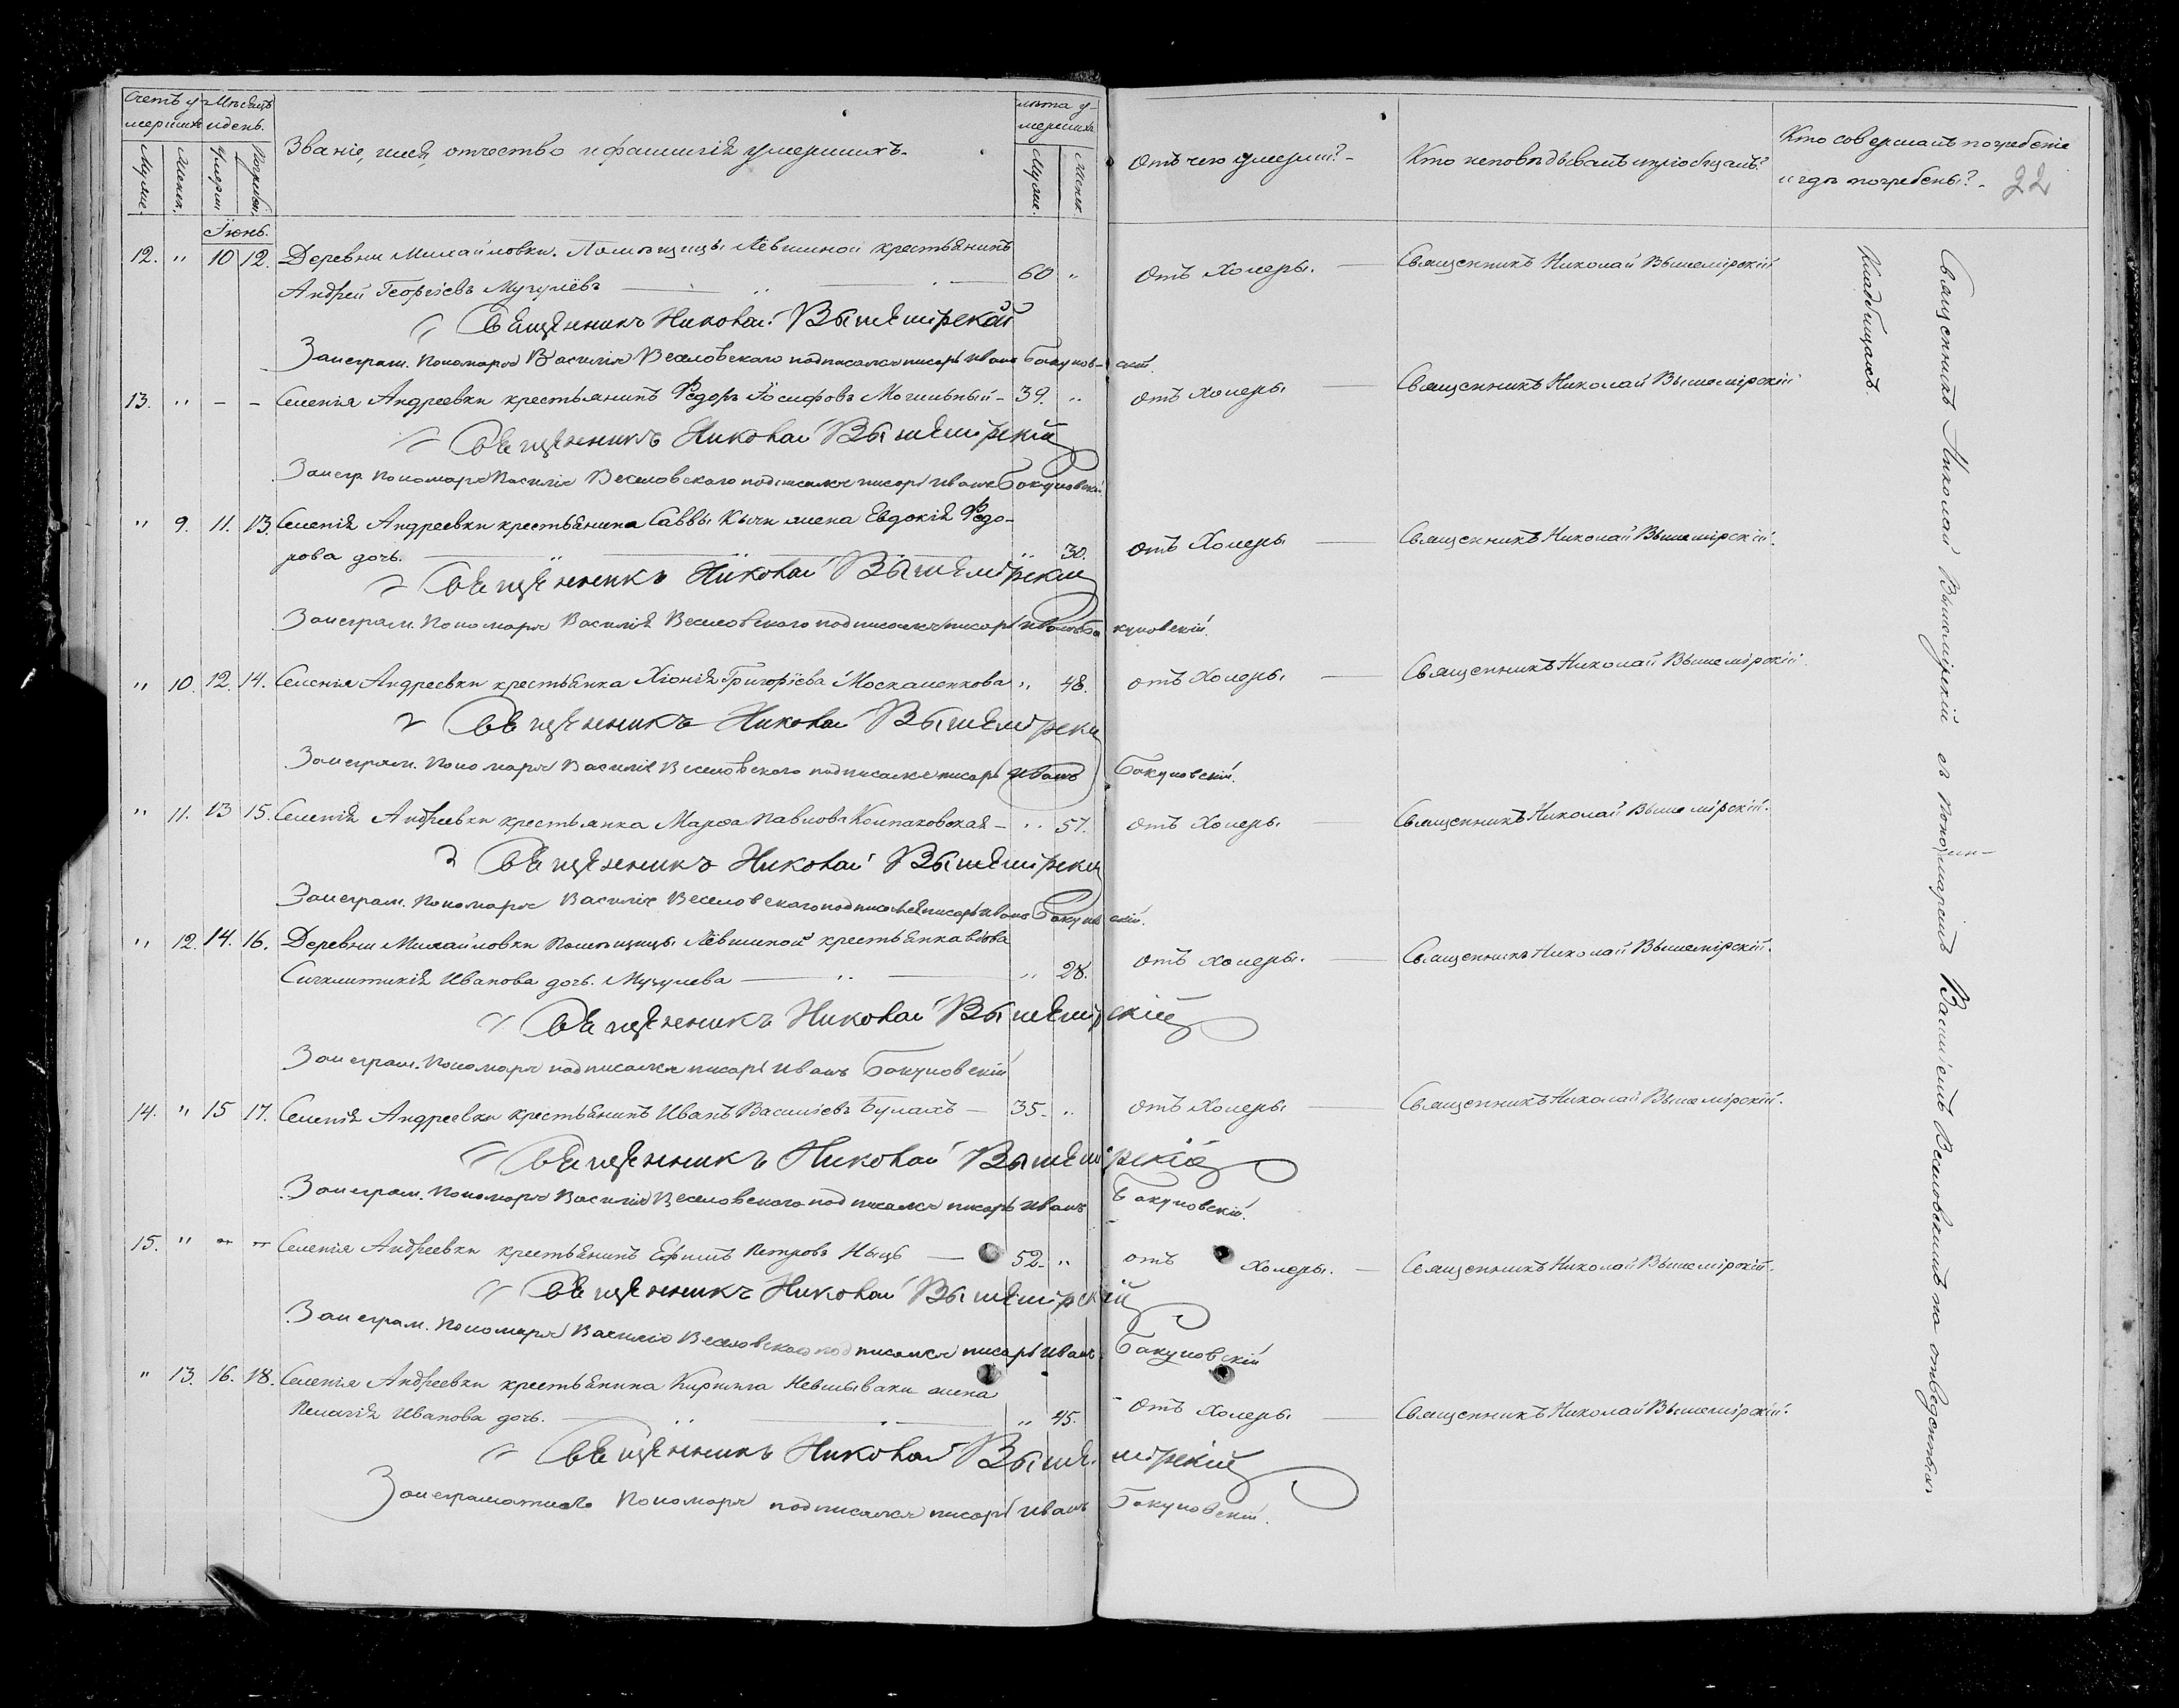 Счетъ у-
мершихъ
Мѣсяцъ
и день.
Званіе, имя, отчество и фамилія умершихъ.
лѣта у-
мершихъ
Отъ чего умерли?
Кто исповѣдывалъ и пріобщалъ?
Кто совершалъ погребеніе
и гдѣ погребены?
22
Муже.
Женск.
Умерли
Погребен.
Муже.
Женск.
Іюнь.
12. " 10 12. Деревни Михайловки. Помѣщицы Лёвшиной крестьянинъ
Андрей Георгіевъ Мугулёвъ 60 " Отъ Холеры. Священникъ Николай Вышемірскій
Священникъ Николай Вышемірскій
За неграм. Пономаря Василія Веселовскаго подписался писарь Иванъ Бакуновскій.
13. " - - Селенія Андреевки крестьянинъ Ѳедоръ Іосифовъ Могильный 39. " отъ Холеры Священникъ Николай Вышемірскій
Священникъ Николай Вышемірскій
За негр. Пономаря Василія Веселовскаго подписался писарь Иванъ Бакуновскій
" 9. 11. 13. Селенія Андреевки крестьянина Саввы Кычи жена Евдокія Ѳедо-
рова дочь. " 30. отъ Холеры Священникъ Николай Вышемірскій.
Священникъ Николай Вышемірскій
За неграм. Пономаря Василія Веселовскаго подписался писарь Иванъ Бакуновскій.
" 10. 12. 14. Селенія Андреевки крестьянка Хіонія Григоріева Москаленкова " 48. отъ Холеры Священникъ Николай Вышемірскій.
Священникъ Николай Вышемірскій
За неграм. Пономаря Василія Веселовскаго подписался писарь Иванъ Бакуновскій.
" 11. 13 15. Селенія Андреевки крестьянка Марѳа Павлова Колпаковская " 57. отъ Холеры Священникъ Николай Вышемірскій.
Священникъ Николай Вышемірскій
За неграм. Пономаря Василія Веселовскаго подписался писарь Иванъ Бакуновскій.
" 12. 14. 16. Деревни Михайловки Помѣщицы Лёвшиной крестьянка вдова
Сигклитикія Иванова дочь. Мугулева " 28. Отъ холеры. Священникъ Николай Вышемірскій.
Священникъ Николай Вышемірскій
За неграм. Пономаря подписался писарь Иванъ Бакуновскій
14. " 15 17. Селенія Андреевки крестьянинъ Иванъ Василіевъ Булахъ 35. " Отъ Холеры Священникъ Николай Вышемірскій.
Священникъ Николай Вышемірскій
За неграм. Пономаря Василія Веселовскаго подписался писарь Иванъ Бакуновскій.
15. " " " Селенія Андреевки крестьянинъ Ефимъ Петровъ Ныцъ 52. " отъ Холеры. Священникъ Николай Вышемірскій.
Священникъ Николай Вышемірскій
За неграм. Пономаря Василія Веселовскаго подписался писарь Иванъ Бакуновскій
" 13. 16. 18. Селенія Андреевки крестьянина Кирилла Невшываки жена
Пелагія Иванова дочь. " 45. Отъ Холеры Священникъ Николай Вышемірскій.
Священникъ Николай Вышемірскій
За неграмотнаго Пономаря подписался писарь Иванъ Бакуновскій.
Священникъ Николай Вышемірскій съ Пономаремъ Василіемъ Веселовскимъ на отведенныхъ
Кладбищахъ.